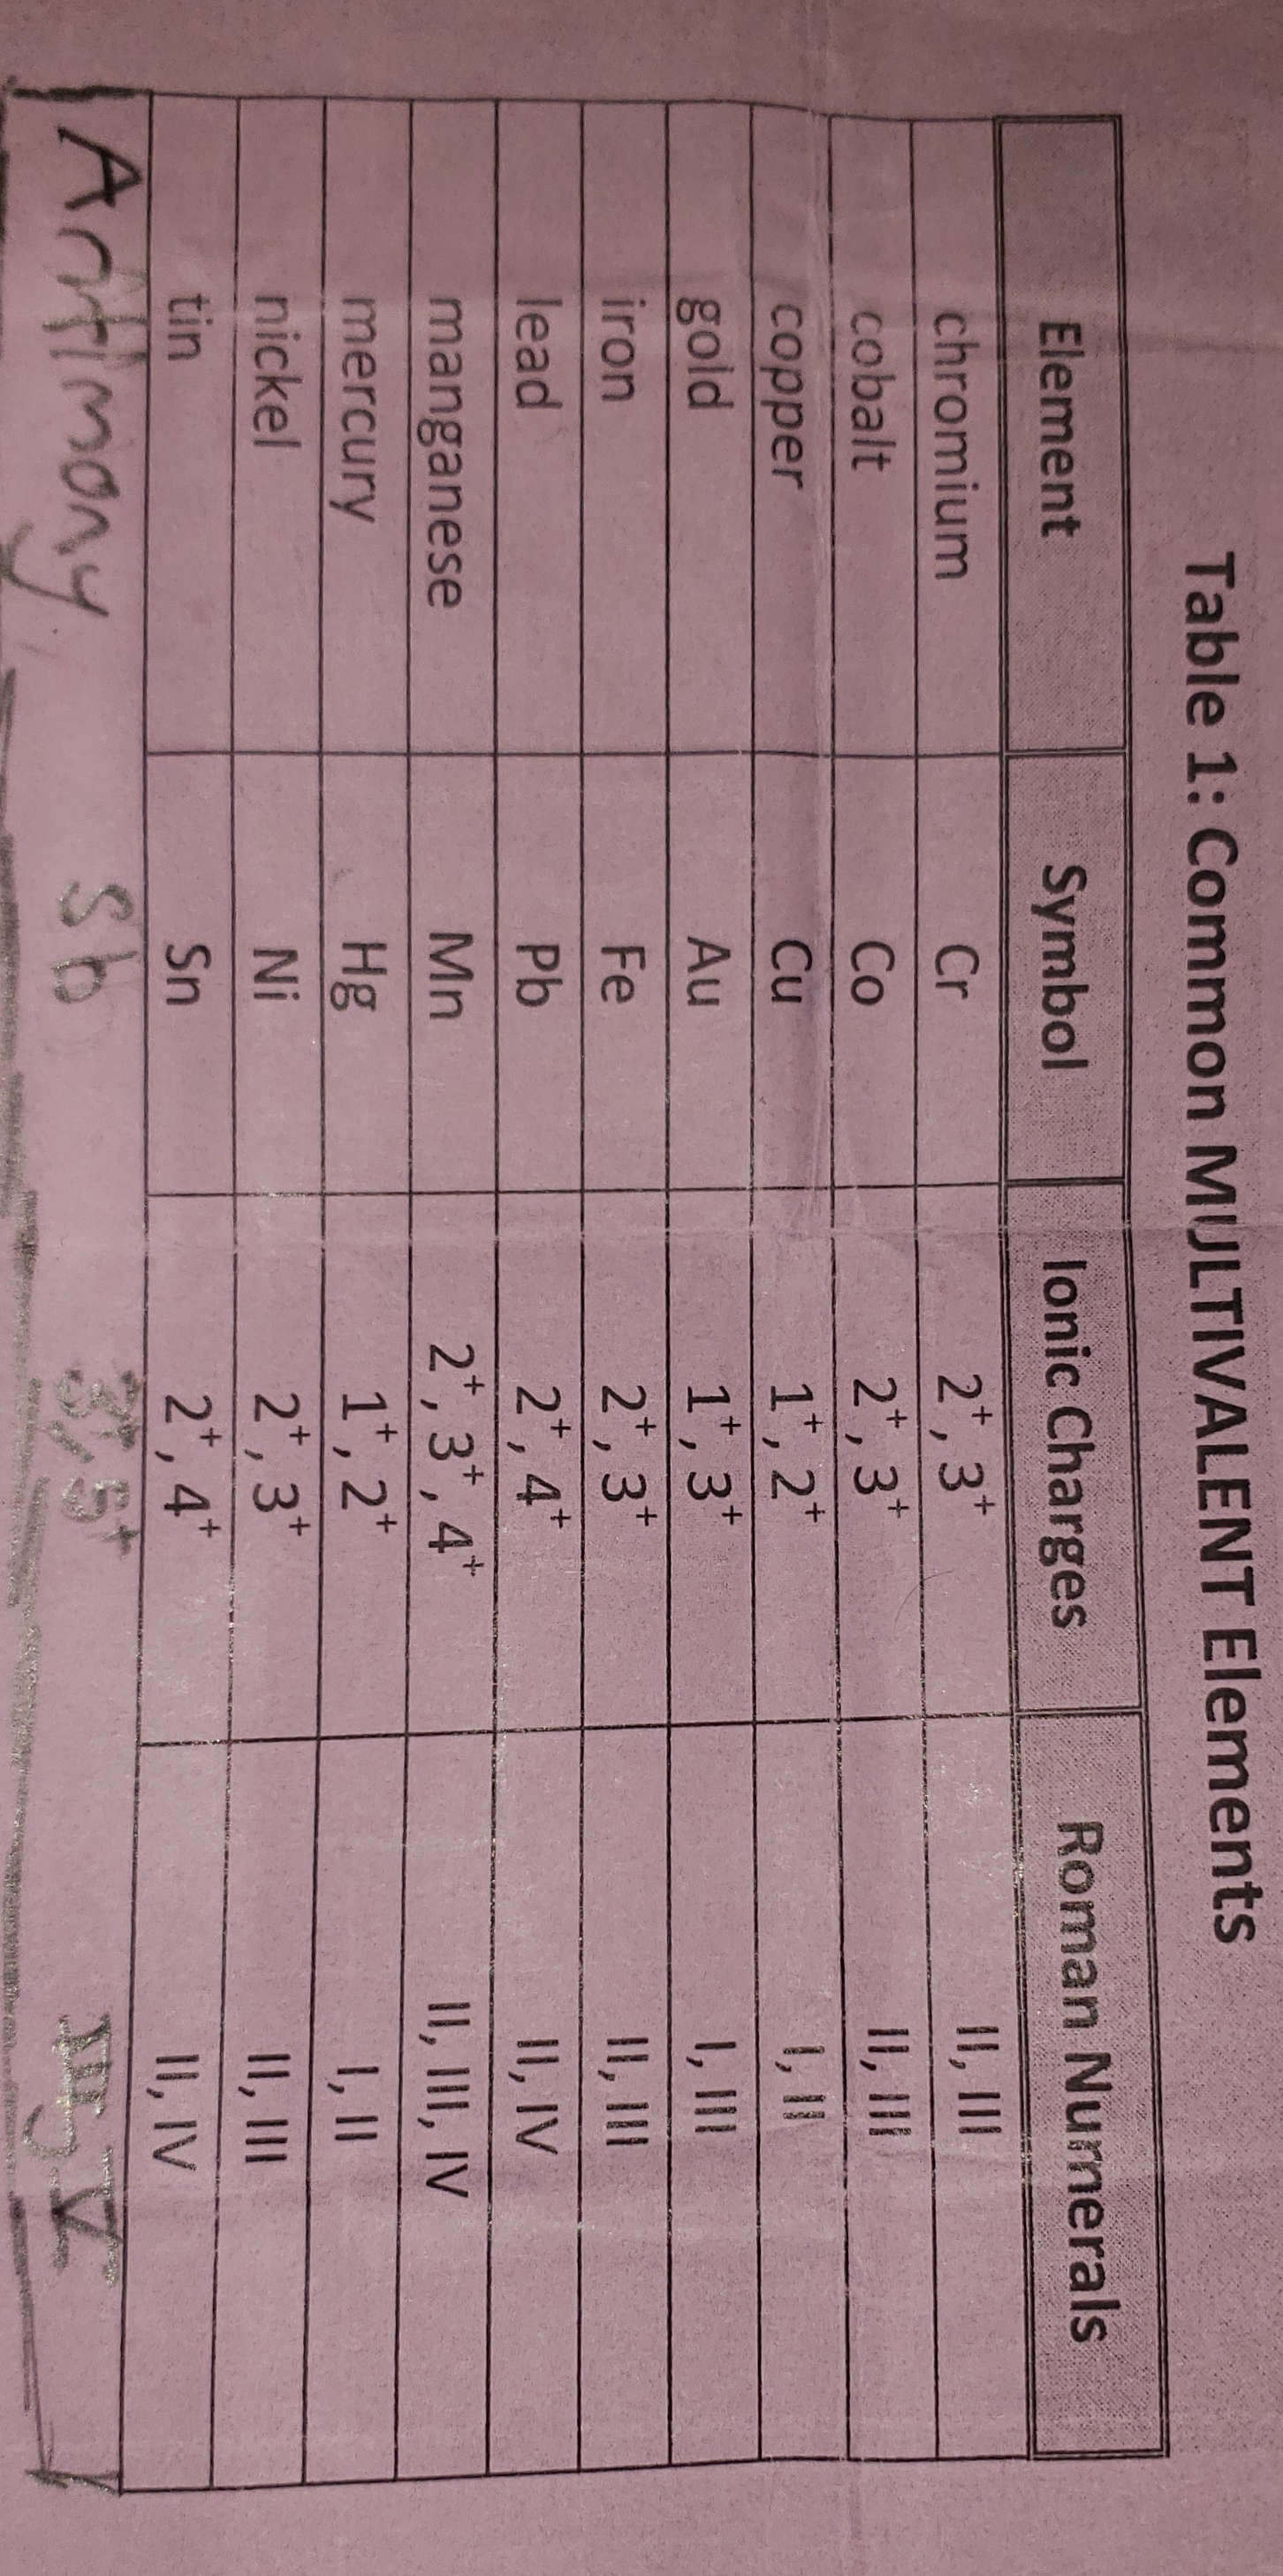 Table 1: Common MULTIVALENT Elements
Element Symbol Ionic Charges Roman Numerals
chromium Cr 2⁺, 3⁺ II, III
cobalt Co 2⁺, 3⁺ II, III
copper Cu 1⁺, 2⁺ I, II
gold Au 1⁺, 3⁺ I, III
iron Fe 2⁺, 3⁺ II, III
lead Pb 2⁺, 4⁺ II, IV
manganese Mn 2⁺, 3⁺, 4⁺ II, III, IV
mercury Hg 1⁺, 2⁺ I, II
nickel Ni 2⁺, 3⁺ II, III
tin Sn 2⁺, 4⁺ II, IV
Antimony Sb 3⁺, 5⁺ III, V